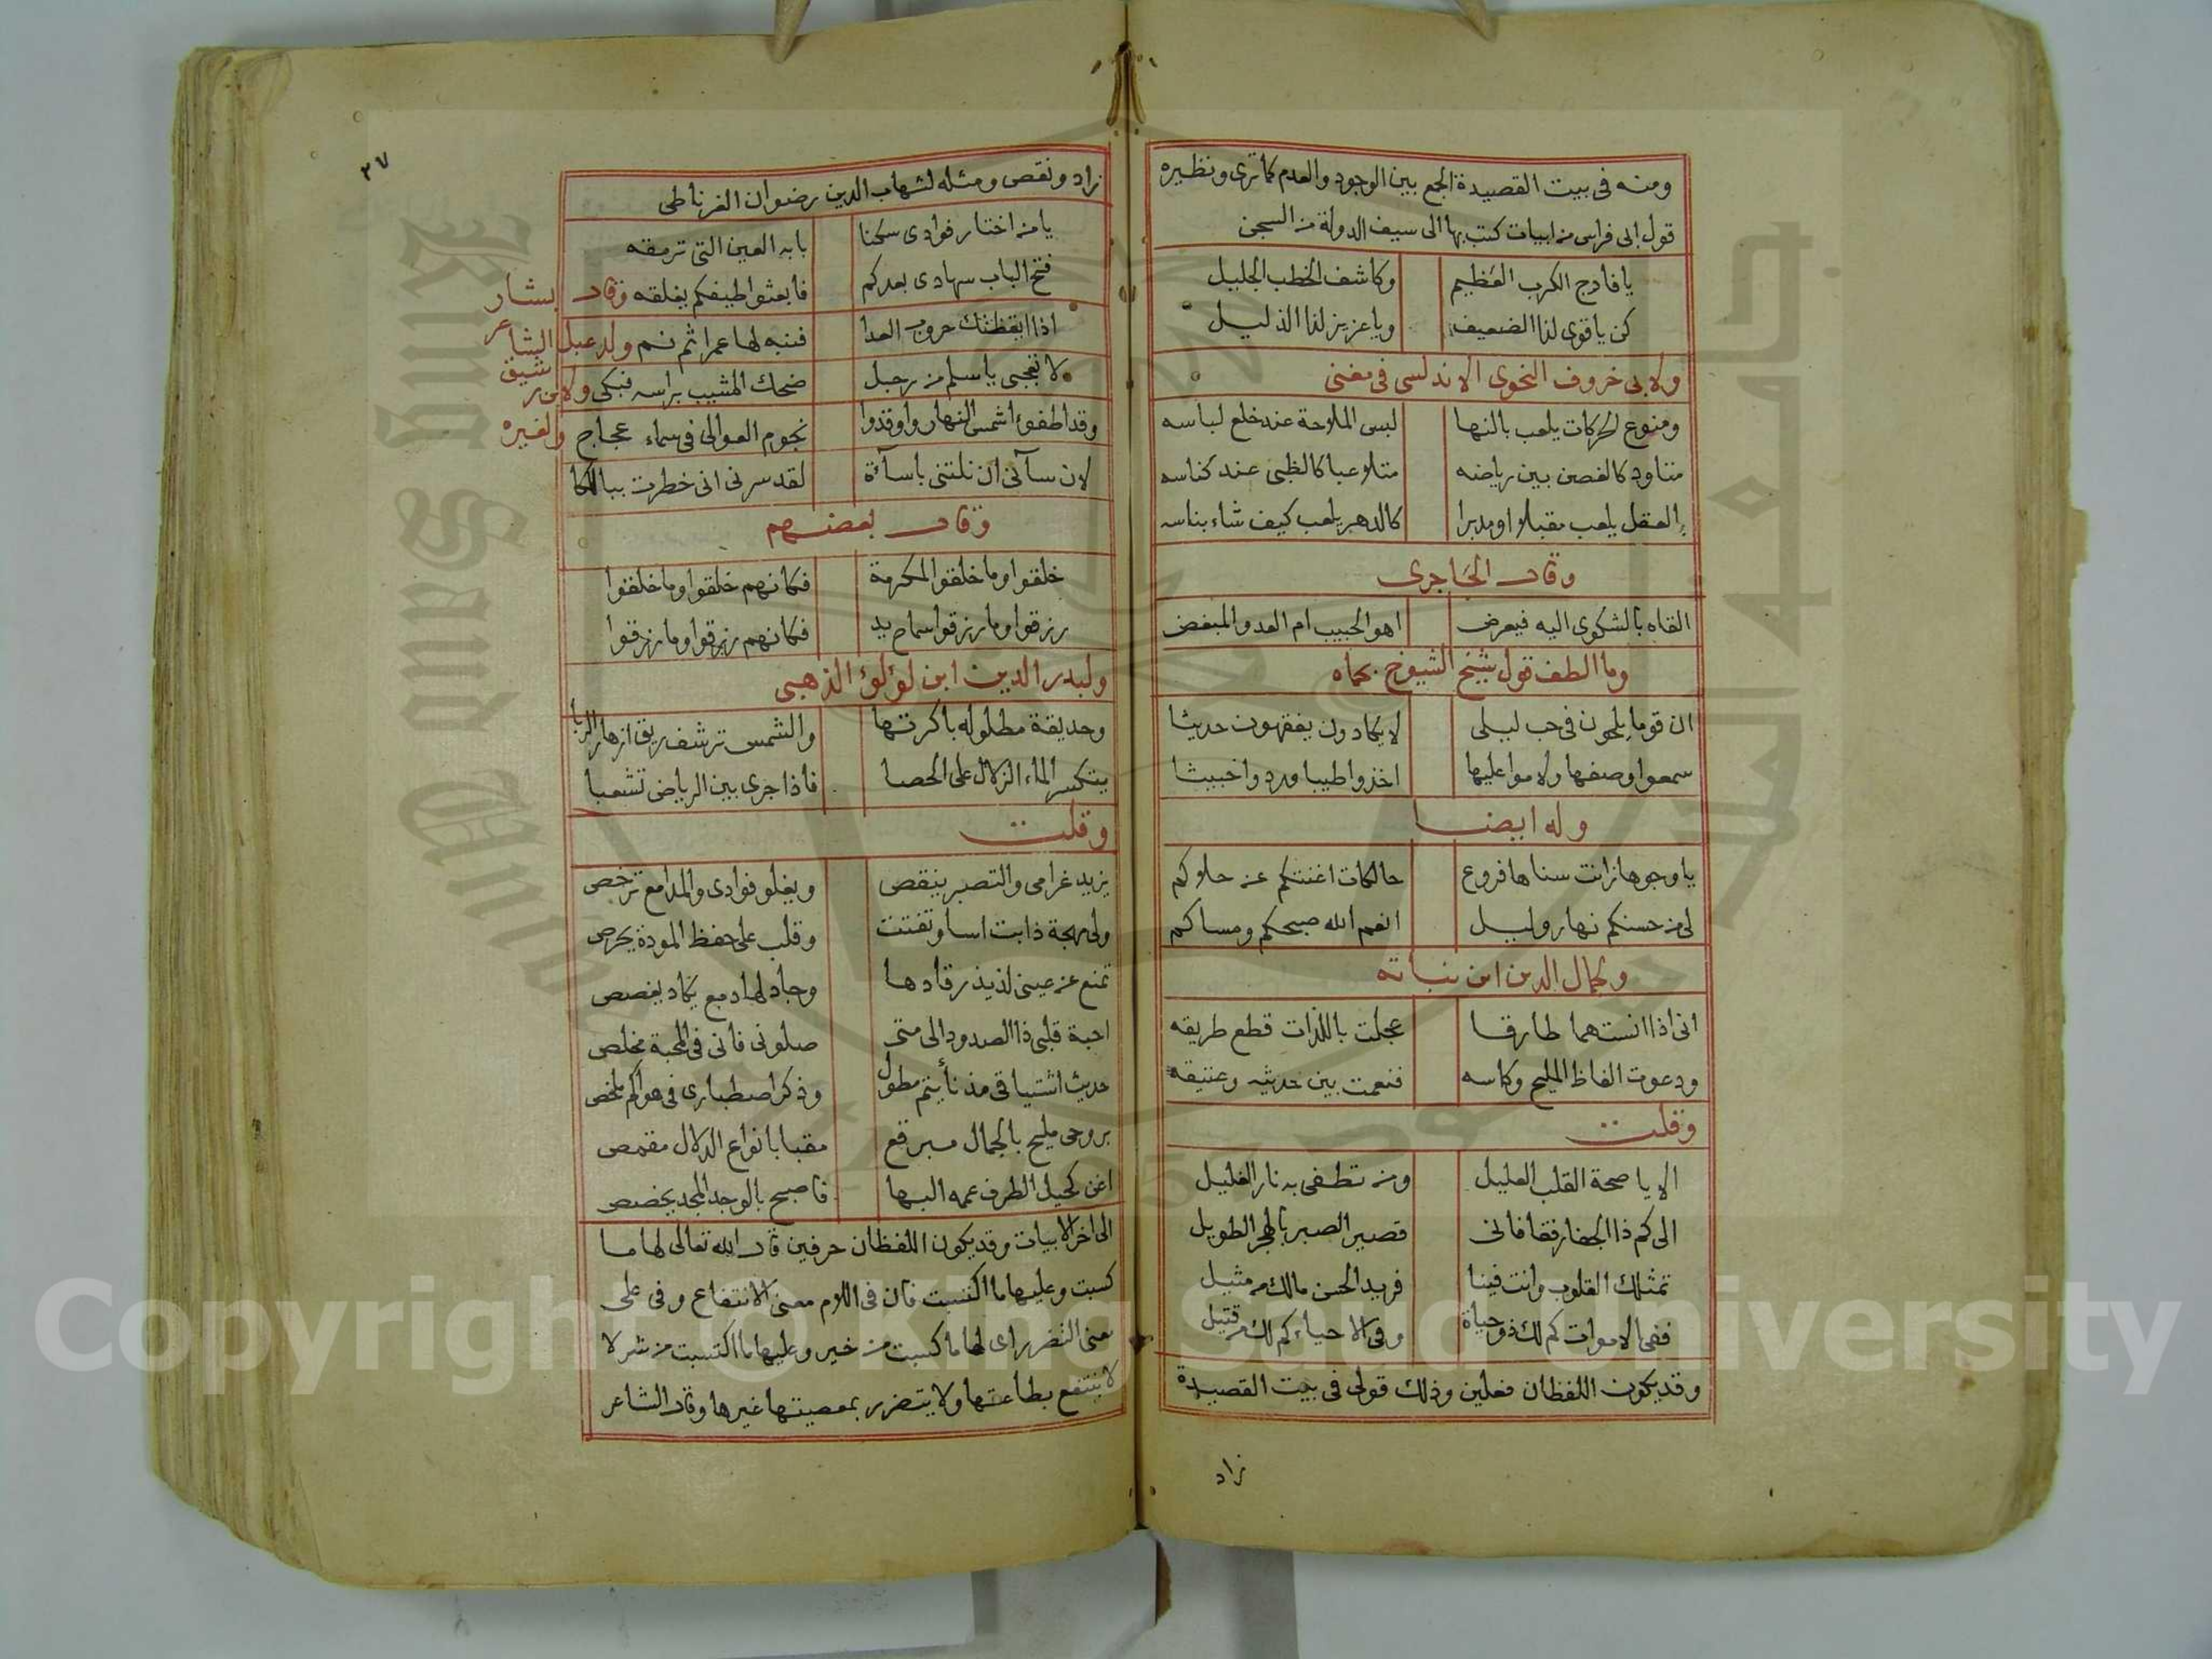 ومنه فى بيت القصيدة الجمع بين الوجود والعدم كما ترى ونظيره
قول ابى فراس من ابيات كتب بها الى سيف الدولة من السجن
يا فادح الكرب العظيم وكاشف الخطب الجليل
كن يا قوى لذا الضعيف ويا عزيز لذا الذليل
ولابى خروف النحوى الاندلسى فى مغنى
ومنوع الحركات يلعب بالنها لبس الملاحة عند خلع لباسه
متاود كالغصن بين رياضه متلاعبا كالظبى عند كناسه
بالعقل يلعب مقبلا او مدبرا كالدهر يلعب كيف شاء بناسه
وقال الحاجرى
القاه بالشكوى اليه فيعرض اهو الحبيب ام العدو المبغض
وما الطف قول شيخ الشيوخ بحماه
ان قوما يلحون فى حب ليلى لا يكادون يفقهون حديثا
سمعوا وصفها ولاموا عليها اخذوا طيبا وردوا خبيثا
وله ايضا
يا وجوها زانت سناها فروع حالكات اغنتكم عن حلاكم
لى من حسنكم نهار وليل انعم الله صبحكم ومساكم
وجمال الدين ابن نباته
انى اذا انست هما طارقا عجلت باللذات قطع طريقه
ودعوت الفاظ المليح وكاسه فنعمت بين حديثه وعتيقه
وقلت
الا يا صحة القلب العليل ومن تطفى به نار الغليل
الى كم ذا الجفا رفقا فانى قصير الصبر بالهجر الطويل
تمثلك القلوب وانت فينا فريد الحسن مالك من مثيل
ففى الاموات كم لك ذو حياة وفى الاحياء كم لك من قتيل
وقد يكون اللفظان فعلين وذلك قولى فى بيت القصيدة
زاد
٢٧
زاد ونقص ومثله لشهاب الدين رضوان الغرناطى
يا من اختار فوادى سكنا بابه العين التى ترمقه
فتح الباب سهادى بعدكم فابعثوا طيفكم يغلقه وقال بشار
اذا ايقظتك حروب العدا فنبه لها عمرا ثم نم ولدعبل الشاعر
لا تعجبى يا سلم من رجل ضحك المشيب براسه فبكى ولابن رشيق
وقد اطفؤا شمس النهار واوقدوا نجوم العوالى فى سماء عجاج ولغيره
لان سآنى ان نلتنى باسآءة لقد سرنى انى خطرت ببالكا
وقال بعضهم
خلقوا وما خلقوا لمكرمة فكانهم خلقوا وما خلقوا
رزقوا وما رزقوا سماح يد فكانهم رزقوا وما رزقوا
ولبدر الدين ابن لؤلؤ الذهبى
وحديقة مطلوله باكرتها والشمس ترشف ريق ازهار الربا
يتكسر الماء الزلال على الحصا فاذا جرى بين الرياض تشعبا
وقلت
يزيد غرامى والتصبر ينقص ويغلو فوادى والمدامع ترخص
ولى مهجة ذابت اسا وتفتت وقلب على حفظ المودة يحرص
تمنع عن عينى لذيذ رقادها وجاد لها دمع يكاد يغصص
احبة قلبى ذا الصدود الى متى صلونى فانى فى المحبة مخلص
حديث اشتياقى مذ نأيتم مطول وذكر اصطبارى فى هواكم ملخص
بروحى مليح بالجمال مبرقع مقبا بانواع الدلال مقمص
اغن كحيل الطرف عمه البها فاصبح بالوجد المجد يخصص
الى اخر الابيات وقد يكون اللفظان حرفين قال الله تعالى لها ما
كسبت وعليها ما اكتسبت فان فى اللام معنى الانتفاع وفى على
معنى التضرر اى لها ما كسبت من خير وعليها ما اكتسبت من شر لا
لا ينتفع بطاعتها ولا يتضرر بمعصيتها غيرها وقال الشاعر
Copyright © King Saud University